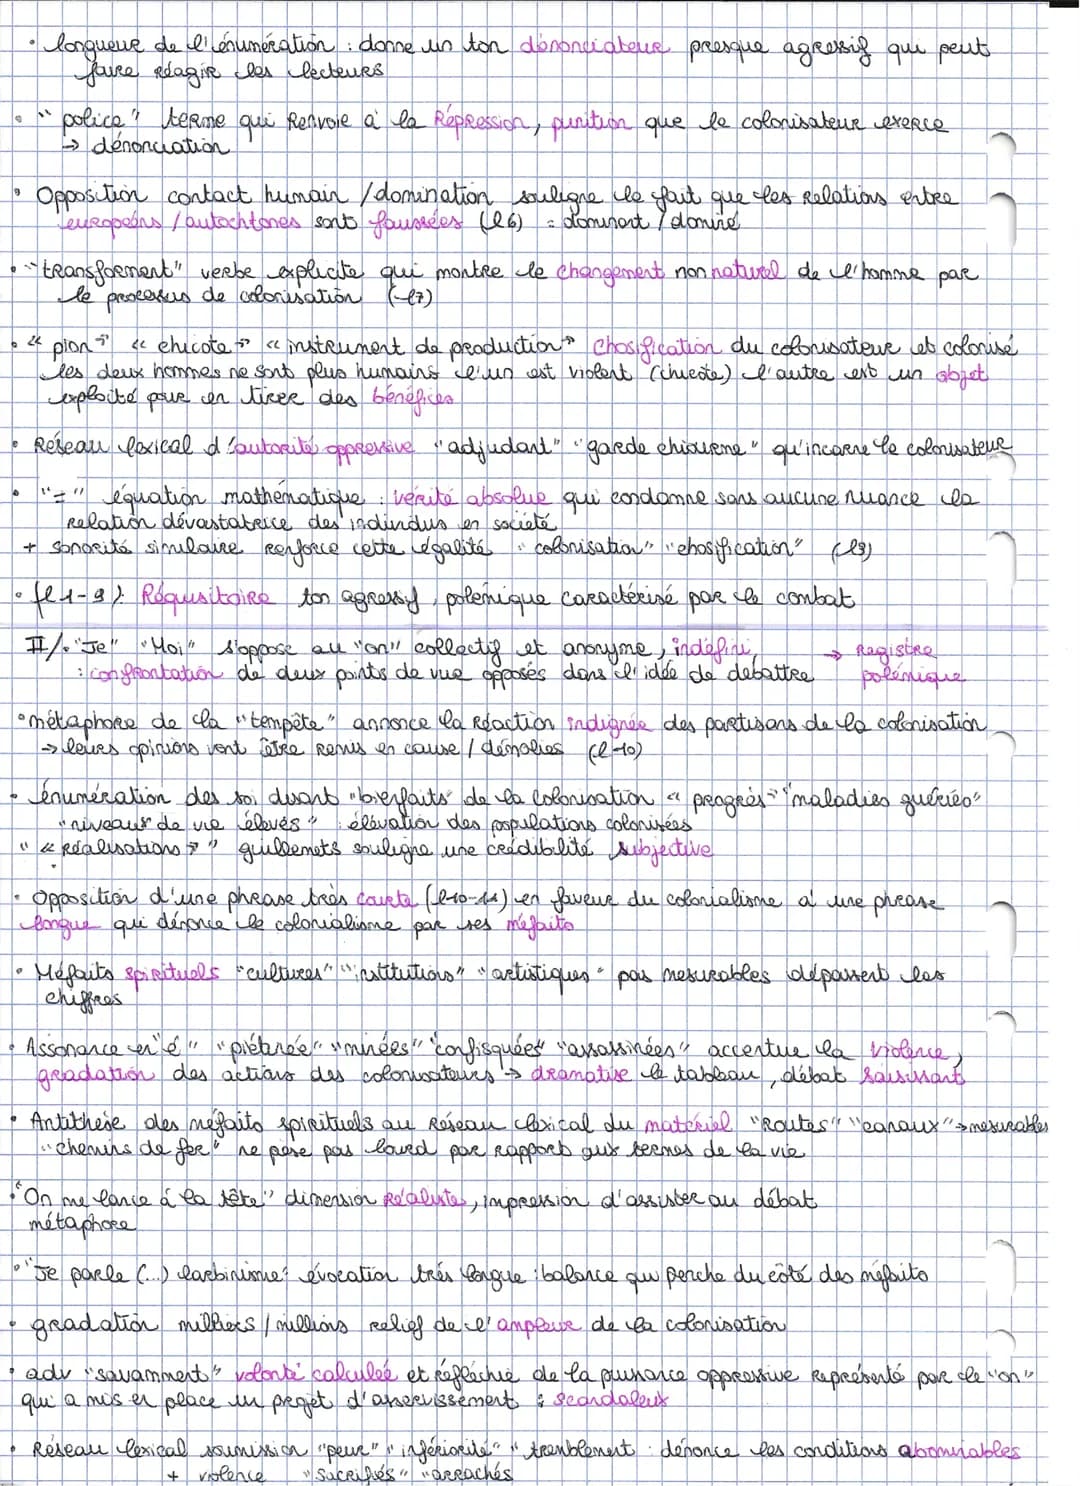 • longueur de l'énumération : donne un ton dénonciateur presque agressif qui peut
faire réagir les lecteurs
• "police" terme qui renvoie à la Répression, punition que le colonisateur exerce
→ dénonciation
• Opposition contact humain / domination souligne le fait que les relations entre
européens / autochtones sont faussées (l6) = dominant / dominé
• "transforment" verbe explicite qui montre le changement non naturel de l'homme par
le processus de colonisation (-l7)
• « pion » « chicote » « instrument de production » chosification du colonisateur et colonisé
les deux hommes ne sont plus humains l'un est violent (chicote) l'autre est un objet
exploité pour en tirer des bénéfices
• Réseau lexical d'autorité oppressive "adjudant" "garde chiourme" qu'incarne le colonisateur
• "=" équation mathématique : vérité absolue qui condamne sans aucune nuance la
Relation dévastatrice des individus en société
+ sonorité similaire renforce cette égalité "colonisation" "chosification" (l9)
• (l1-9) : Réquisitoire ton agressif, polémique caractérisé par le combat
II/• "Je" "Moi" s'oppose au "on" collectif et anonyme, indéfini, → Registre
: confrontation de deux points de vue opposés dans l'idée de débattre polémique
• métaphore de la "tempête" annonce la réaction indignée des partisans de la colonisation
→ leurs opinions vont être remis en cause / démolies (l-10)
• énumération des soi disant "bienfaits" de la colonisation « progrès » "maladies guéries"
"niveaux de vie élevés" : élévation des populations colonisées
" « réalisations » " guillemets souligne une crédibilité subjective
• Opposition d'une phrase très courte (l10-11) en faveur du colonialisme à une phrase
longue qui dénonce le colonialisme par ses méfaits
• Méfaits spirituels "cultures" "institutions" "artistiques" pas mesurables dépassent les
chiffres
• Assonance en "é" "piétinée" "minées" "confisquées" "assassinées" accentue la violence,
gradation des actions des colonisateurs → dramatise le tableau, débat saisissant
• Antithèse des méfaits spirituels au Réseau lexical du matériel "Routes" "canaux" → mesurables
"chemins de fer" ne pèse pas lourd par rapport aux termes de la vie
• "On me lance à la tête" dimension réaliste, impression d'assister au débat
métaphore
• "Je parle (...) larbinisme" évocation très longue : balance qui penche du côté des méfaits
• gradation milliers / millions relief de l'ampleur de la colonisation
• adv "savamment" volonté calculée et réfléchie de la puissance oppressive représenté par le "on"
qui a mis en place un projet d'asservissement : scandaleux
• Réseau lexical soumission "peur" "infériorité" "tremblement : dénonce les conditions abominables
+ violence "sacrifiés" "arrachés